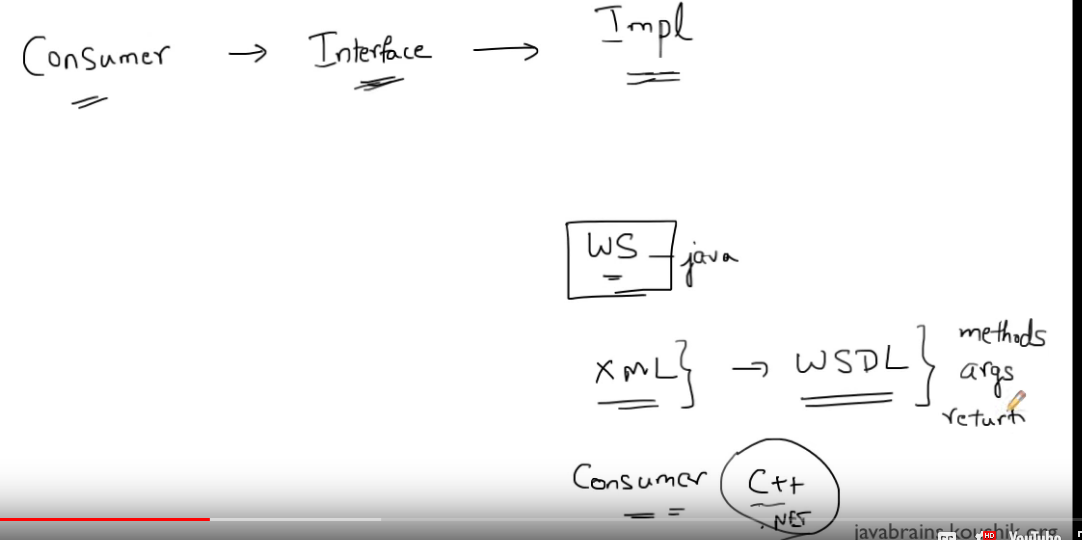 Consumer → Interface → Impl
WS - java
XML } → WSDL } methods
args
return
Consumer C++
.NET
javabrains.koushik.org
HD YouTube